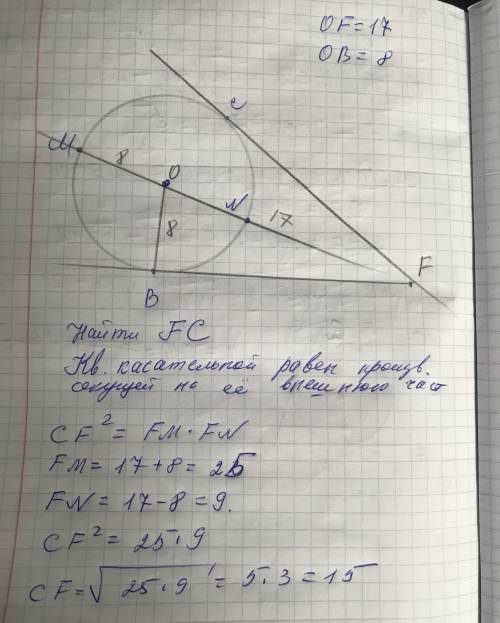 OF=17
OB=8
C
M
8
O
N
17
8
F
B
Найти FC
Кв. касательной равен произв.
секущей на её внешнюю част
CF² = FM · FN
FM = 17 + 8 = 25
FN = 17 - 8 = 9.
CF² = 25 · 9
CF = √25 · 9 = 5 · 3 = 15